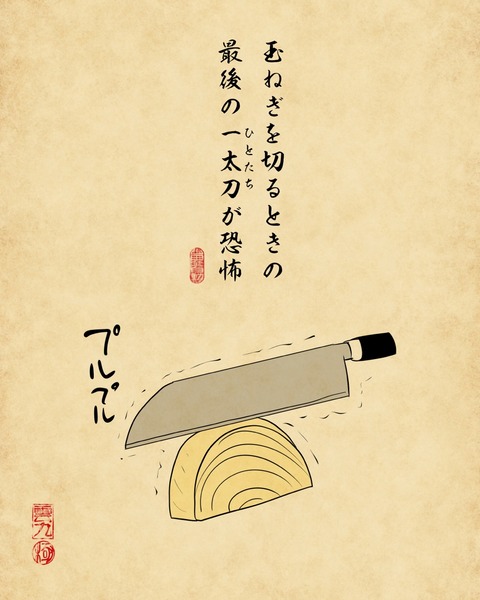 玉ねぎを切るときの
最後の一太刀が恐怖
ひとたち
プルプル